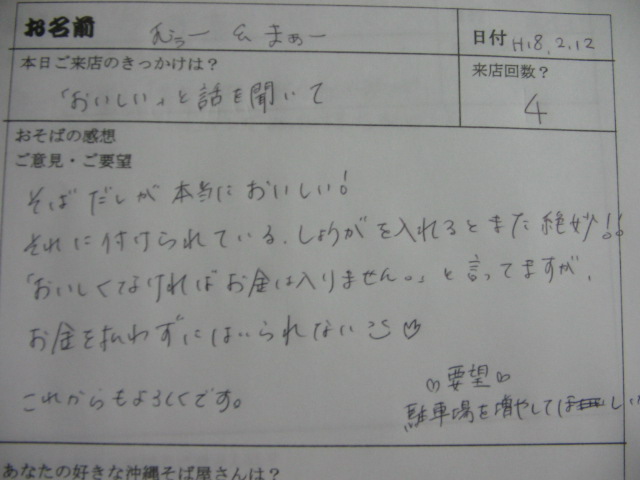 お名前 むぅー & まぁー 日付 H18.2.12
本日ご来店のきっかけは? 来店回数?
「おいしい」と話を聞いて 4
おそばの感想
ご意見・ご要望
そばだしが本当においしい!
それに付けられている、しょうがを入れるとまた絶妙!!
「おいしくなければお金は入りません。」と言ってますが、
お金を払わずにはいられない ♡
これからもよろしくです。
♡要望♡
駐車場を増やしてほしい
あなたの好きな沖縄そば屋さんは?